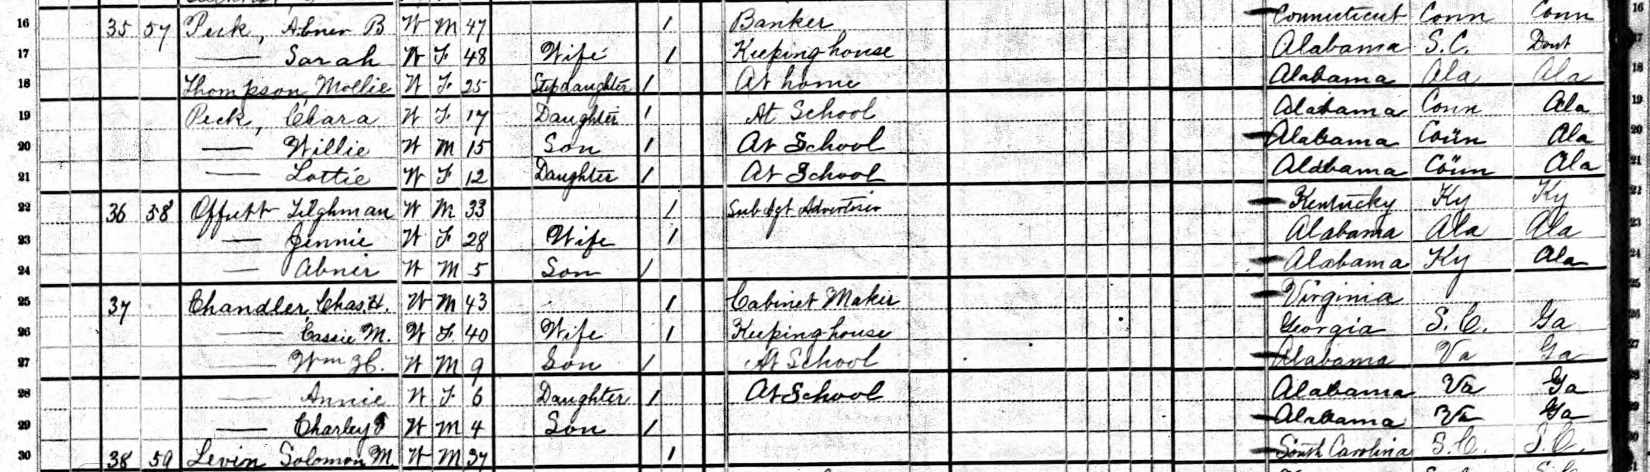 16 35 57 Peck, Abner B W M 47 1 Banker Connecticut Conn Conn 16
17 — Sarah W F 48 Wife 1 Keeping house Alabama S.C. Dont 17
18 Thompson Mollie W F 25 Stepdaughter 1 At home Alabama Ala Ala 18
19 Peck, Clara W F 17 Daughter 1 At School Alabama Conn Ala 19
20 — Willie W M 15 Son 1 At School Alabama Conn Ala 20
21 — Lottie W F 12 Daughter 1 At School Alabama Conn Ala 21
22 36 58 Offutt Tilghman W M 33 1 Kentucky Ky Ky
23 — Jennie W F 28 Wife 1 Alabama Ala Ala 23
24 — Abner W M 5 Son 1 Alabama Ky Ala 24
25 37 Chandler, Chas. H. W M 43 1 Cabinet Maker Virginia 25
26 — Cassie M. W F 40 Wife 1 Keeping house Georgia S.C. Ga 26
27 — Wm H. W M 9 Son 1 At School Alabama Va Ga 27
28 — Annie W F 6 Daughter 1 At School Alabama Va Ga
29 — Charley W M 4 Son 1 Alabama Va Ga
30 38 59 Levin Solomon M. W M 37 1 South Carolina S.C. S.C. 30